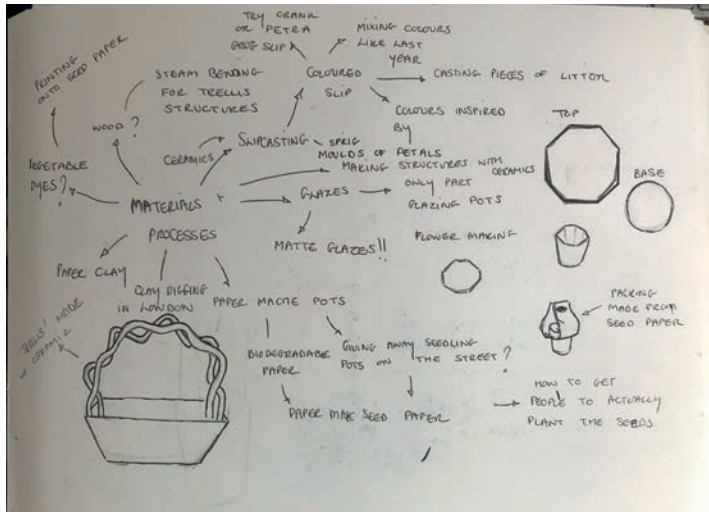 TRY CRANK
OR PETRA
GROG SLIP
MIXING COLOURS
LIKE LAST
YEAR
PRINTING
ONTO SEED PAPER
STEAM BENDING
FOR TRELLIS
STRUCTURES
COLOURED
SLIP
CASTING PIECES OF LITTER
WOOD?
COLOURS INSPIRED
BY
CERAMICS
SLIPCASTING
SPRIG
MOULDS OF PETALS
TOP
VEGETABLE
DYES?
MAKING STRUCTURES WITH
CERAMICS
BASE
MATERIALS +
PROCESSES
GLAZES
ONLY PART
GLAZING POTS
MATTE GLAZES!!
FLOWER MAKING
PAPER CLAY
CLAY DIGGING
IN LONDON
PAPER MACHE POTS
PACKING
MADE FROM
SEED PAPER
MADE
CERAMIC
BIODEGRADABLE
PAPER
GIVING AWAY SEEDLING
POTS ON THE STREET?
PAPER MAK SEED PAPER
HOW TO GET
PEOPLE TO ACTUALLY
PLANT THE SEEDS